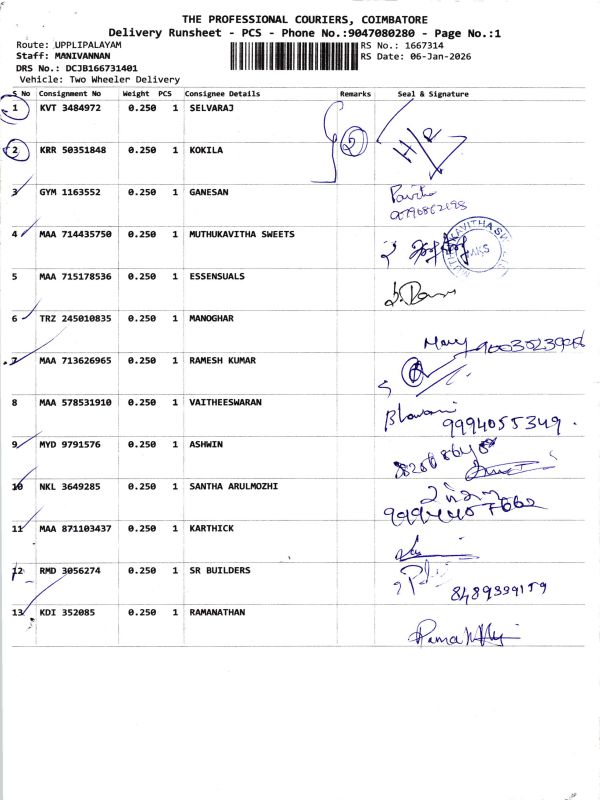 THE PROFESSIONAL COURIERS, COIMBATORE
Delivery Runsheet - PCS - Phone No.:9047080280 - Page No.:1
Route: UPPLIPALAYAM
RS No.: 1667314
Staff: MANIVANNAN
RS Date: 06-Jan-2026
DRS No.: DCJB166731401
Vehicle: Two Wheeler Delivery
S No Consignment No Weight PCS Consignee Details Remarks Seal & Signature
1 KVT 3484972 0.250 1 SELVARAJ
2 KRR 50351848 0.250 1 KOKILA
H/R
3 GYM 1163552 0.250 1 GANESAN
Pavitha
4 MAA 714435750 0.250 1 MUTHUKAVITHA SWEETS
MKS
5 MAA 715178536 0.250 1 ESSENSUALS
6 TRZ 245010835 0.250 1 MANOGHAR
7 MAA 713626965 0.250 1 RAMESH KUMAR
8 MAA 578531910 0.250 1 VAITHEESWARAN
Bhavani
9994055349.
9 MYD 9791576 0.250 1 ASHWIN
10 NKL 3649285 0.250 1 SANTHA ARULMOZHI
11 MAA 871103437 0.250 1 KARTHICK
12 RMD 3056274 0.250 1 SR BUILDERS
13 KDI 352085 0.250 1 RAMANATHAN